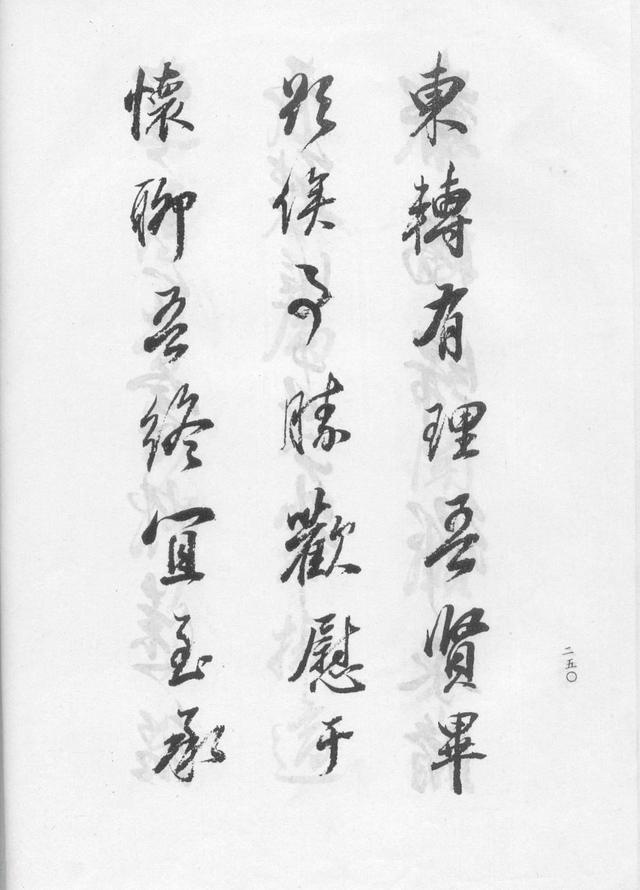 東轉有理吾賢畢
欵俟了勝歡慰于
懷聊吾終宜至承
二五〇